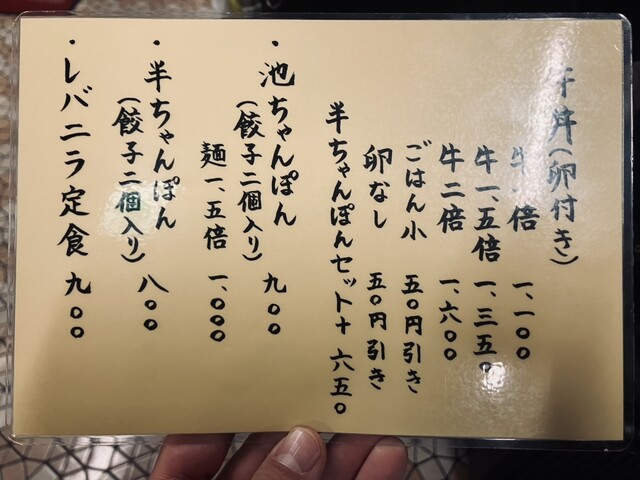 牛丼(卵付き)
牛一倍 一、一〇〇
牛一、五倍 一、三五〇
牛二倍 一、六〇〇
ごはん小 五〇円引き
卵なし 五〇円引き
半ちゃんぽんセット+ 六五〇
・池ちゃんぽん 九〇〇
(餃子二個入り)
麺一、五倍 一、〇〇〇
・半ちゃんぽん 八〇〇
(餃子二個入り)
・レバニラ定食 九〇〇